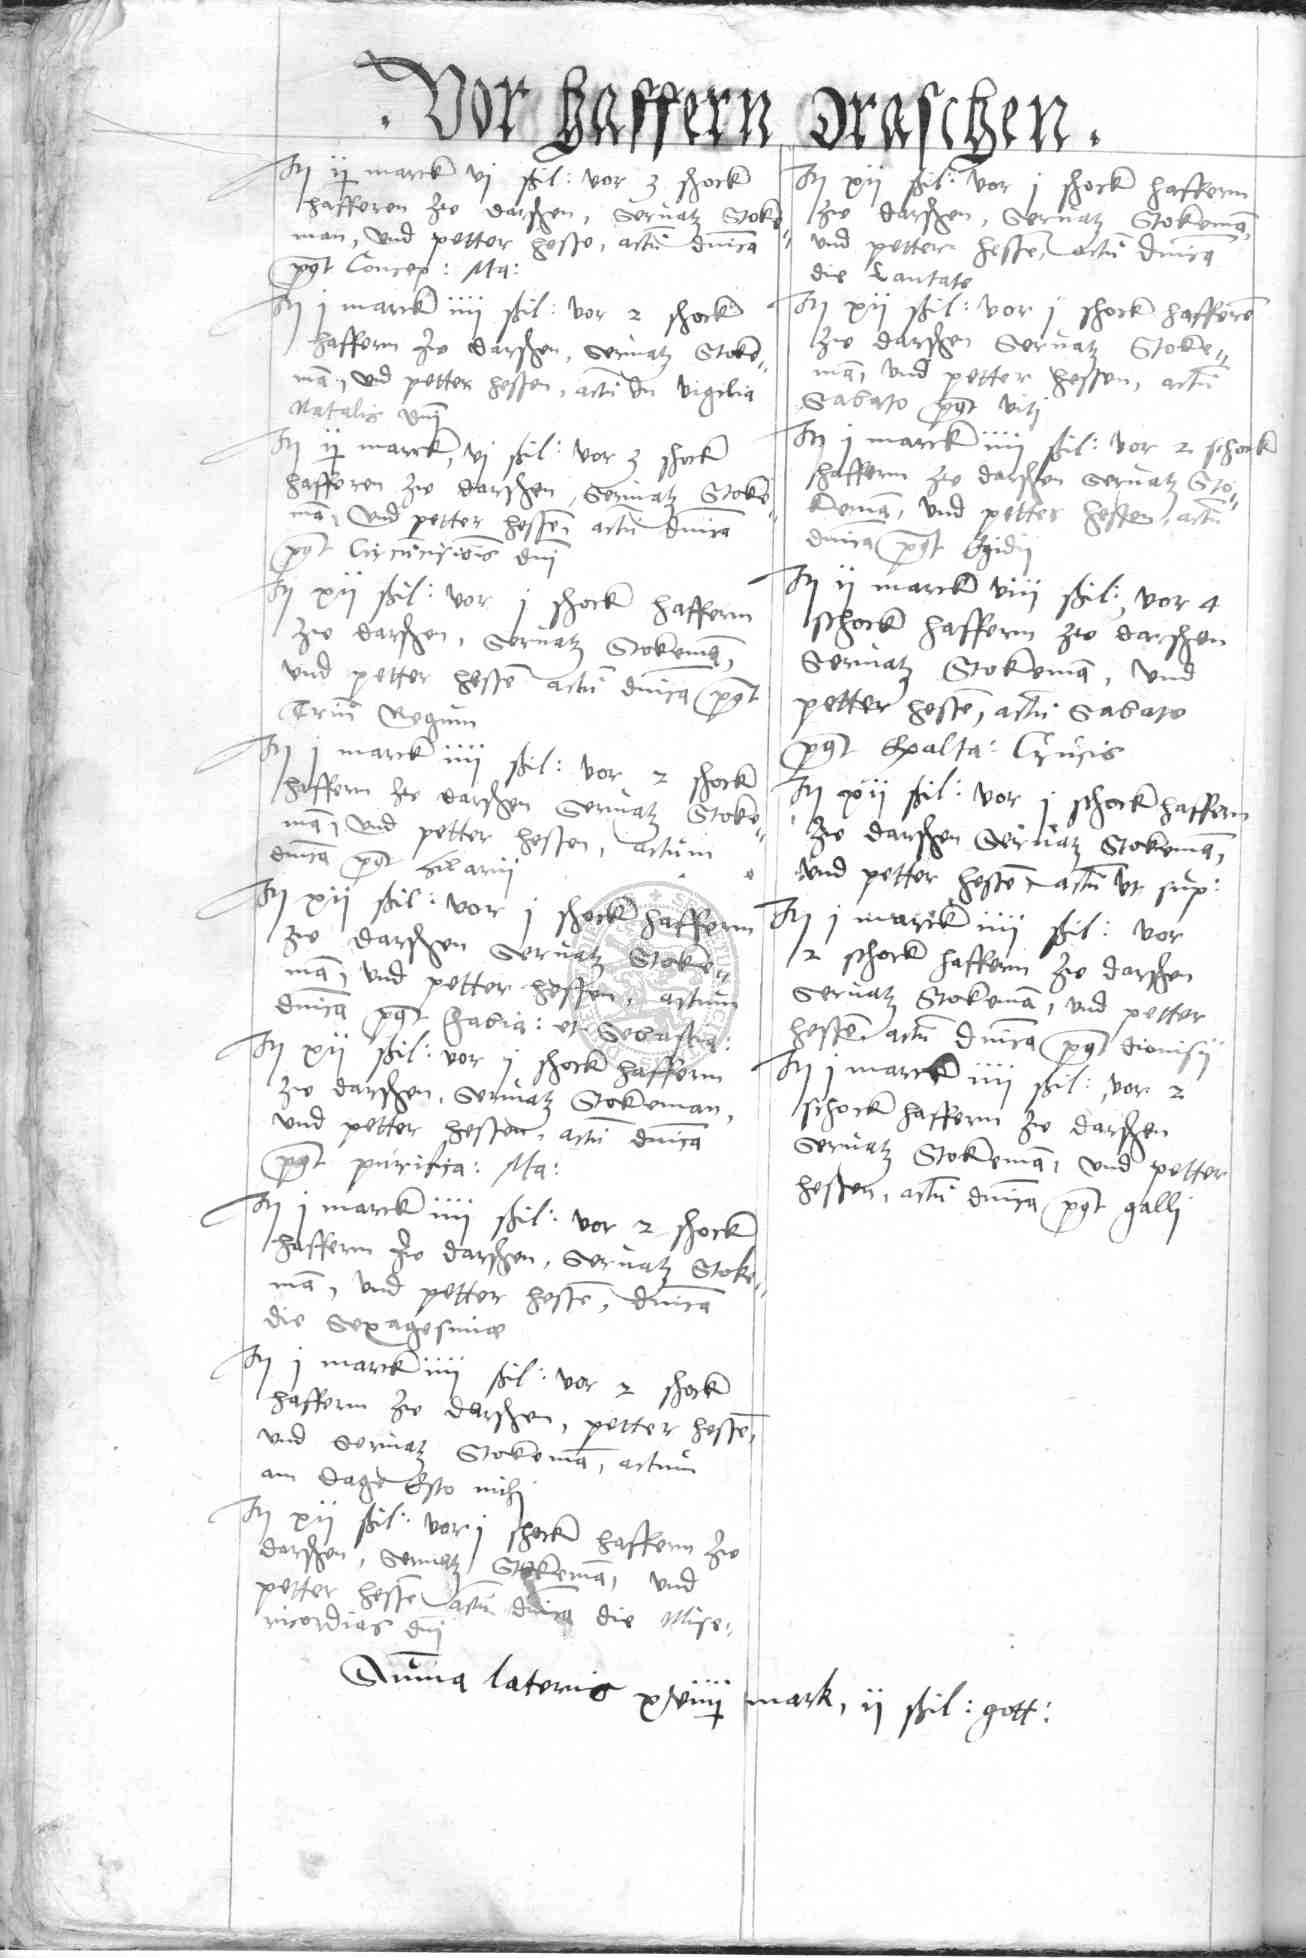 . Vor haffern draschen .
Itz ij marck vj ßil: vor 3 shock
hafferen zw darshen, Servatz Stoke„
man, vnd petter hesse, actū dnīca
post Concep: Ma:
Itz j marck iiij ßil: vor 2 shock
haffern zw darshen, Servatz Stoke„
mā, vnd petter hessen, actū in vigilia
Natalis dnī
Itz ij marck, vj ßil: vor 3 shock
hafferen zw darshen, Servatz Stoke„
mā, vnd petter hessen actū dnīca
post Circūcisiōis dnī
Itz xij ßil: vor j shock haffern
zw darshen, Servatz Stokemā,
vnd petter hessē actū dnīca post
Triū Regum
Itz j marck iiij ßil: vor 2 shock
haffern zw darshen Servatz Stoke„
mā, vnd petter hessen, actum
dnīca post hilarij
Itz xij ßil: vor j shock haffern
zw darshen Servatz Stoke„
mā, vnd petter hessen, actum
dnīca post Fabia: et Sebastia:
Itz xij ßil: vor j shock haffern
zw darshen, Servatz Stokeman,
vnd petter hessen, actū dnīca
post purifica: Ma:
Itz j marck iiij ßil: vor 2 shock
haffern zw darshen, Servatz Stoke„
mā, vnd petter hessē, dnīca
die Sexagesime
Itz j marck iiij ßil: vor 2 shock
haffern zw darshen, petter hessē,
vnd Servatz Stokemā, actum
am dage Esto mihj
Itz xij ßil: vor j shock haffern zw
darshen, Servatz Stokemā, vnd
petter hessē actū dnīca die Mise„
ricordias dnī
Itz xij ßil: vor j shock haffern
zw darshen, Servatz Stokemā,
vnd petter hessē, actū dnīca
die Cantate
Itz xij ßil: vor j shock hafferē
zw darshen Servatz Stoke„
mā, vnd petter hessen, actū
Sabato post vitj
Itz j marck iiij ßil: vor 2 schock
haffern zw darshen Servatz Sto„
kemā, vnd petter hessen, actū
dnīca post Egidij
Itz ij marck viij ßil:, vor 4
schock haffern zw darshen
Servatz Stokemā, vnd
petter hessē, actū Sabato
post Exalta: Crucis
Itz xij ßil: vor j schock haffern
zw darshen Servatz Stokemā,
vnd petter hessē, actū vt sup:
Itz j marck iiij ßil: vor
2 schock haffern zw darshen
Servatz Stokemā, vnd petter
hessē actū dnīca post dionisij
Itz j marck iiij ßil:, vor 2
schock haffern zw darshen
Servatz Stokemā, vnd petter
hessen, actū dnīca post galli
Suma lateris xviiij mark, ij ßil: gott: